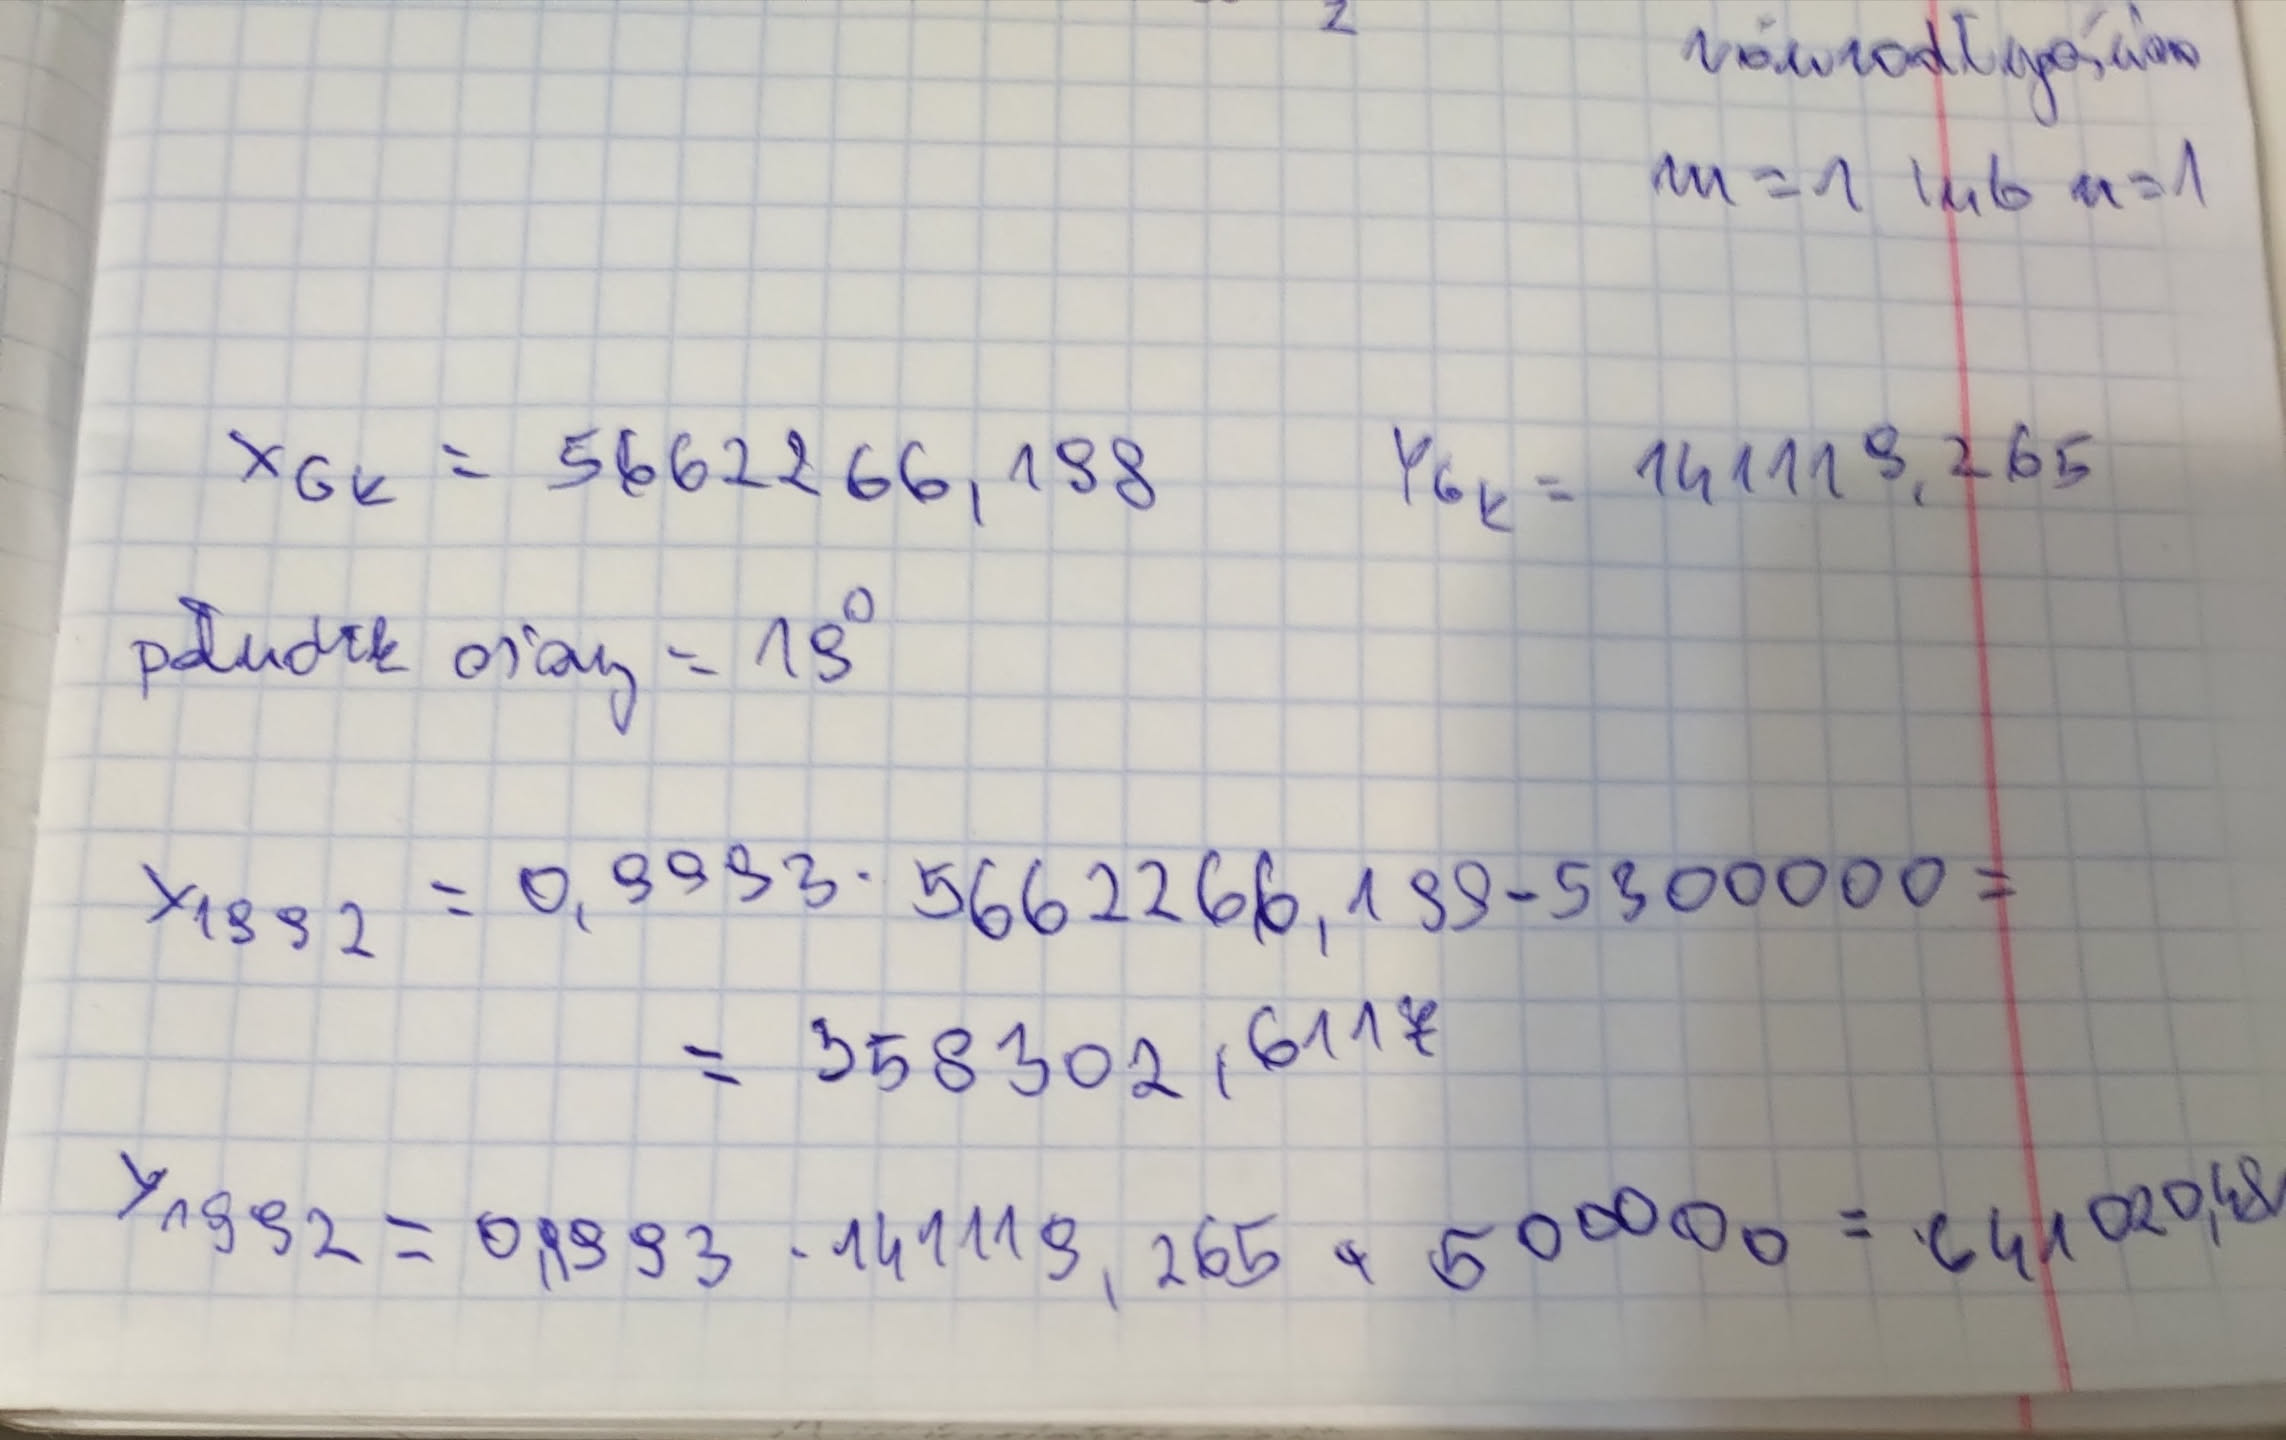 2
równoodległościow
m = 1 lub n = 1
X_GK = 5662266,198 Y_GK = 141119,265
południk osiowy = 19°
X_1992 = 0,9993 · 5662266,199 - 5300000 =
= 358302,6117
Y_1992 = 0,9993 · 141119,265 + 500000 = 641020,48